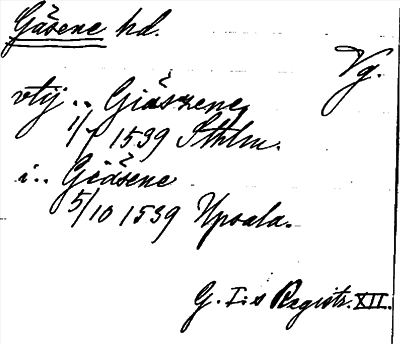 Gåsene hd.
Vg.
vtij .. Giåszene
1/7 1539 Sthlm.
i .. Gėåsene
5/10 1539 Upsala.
G. I:s Registr. XII.